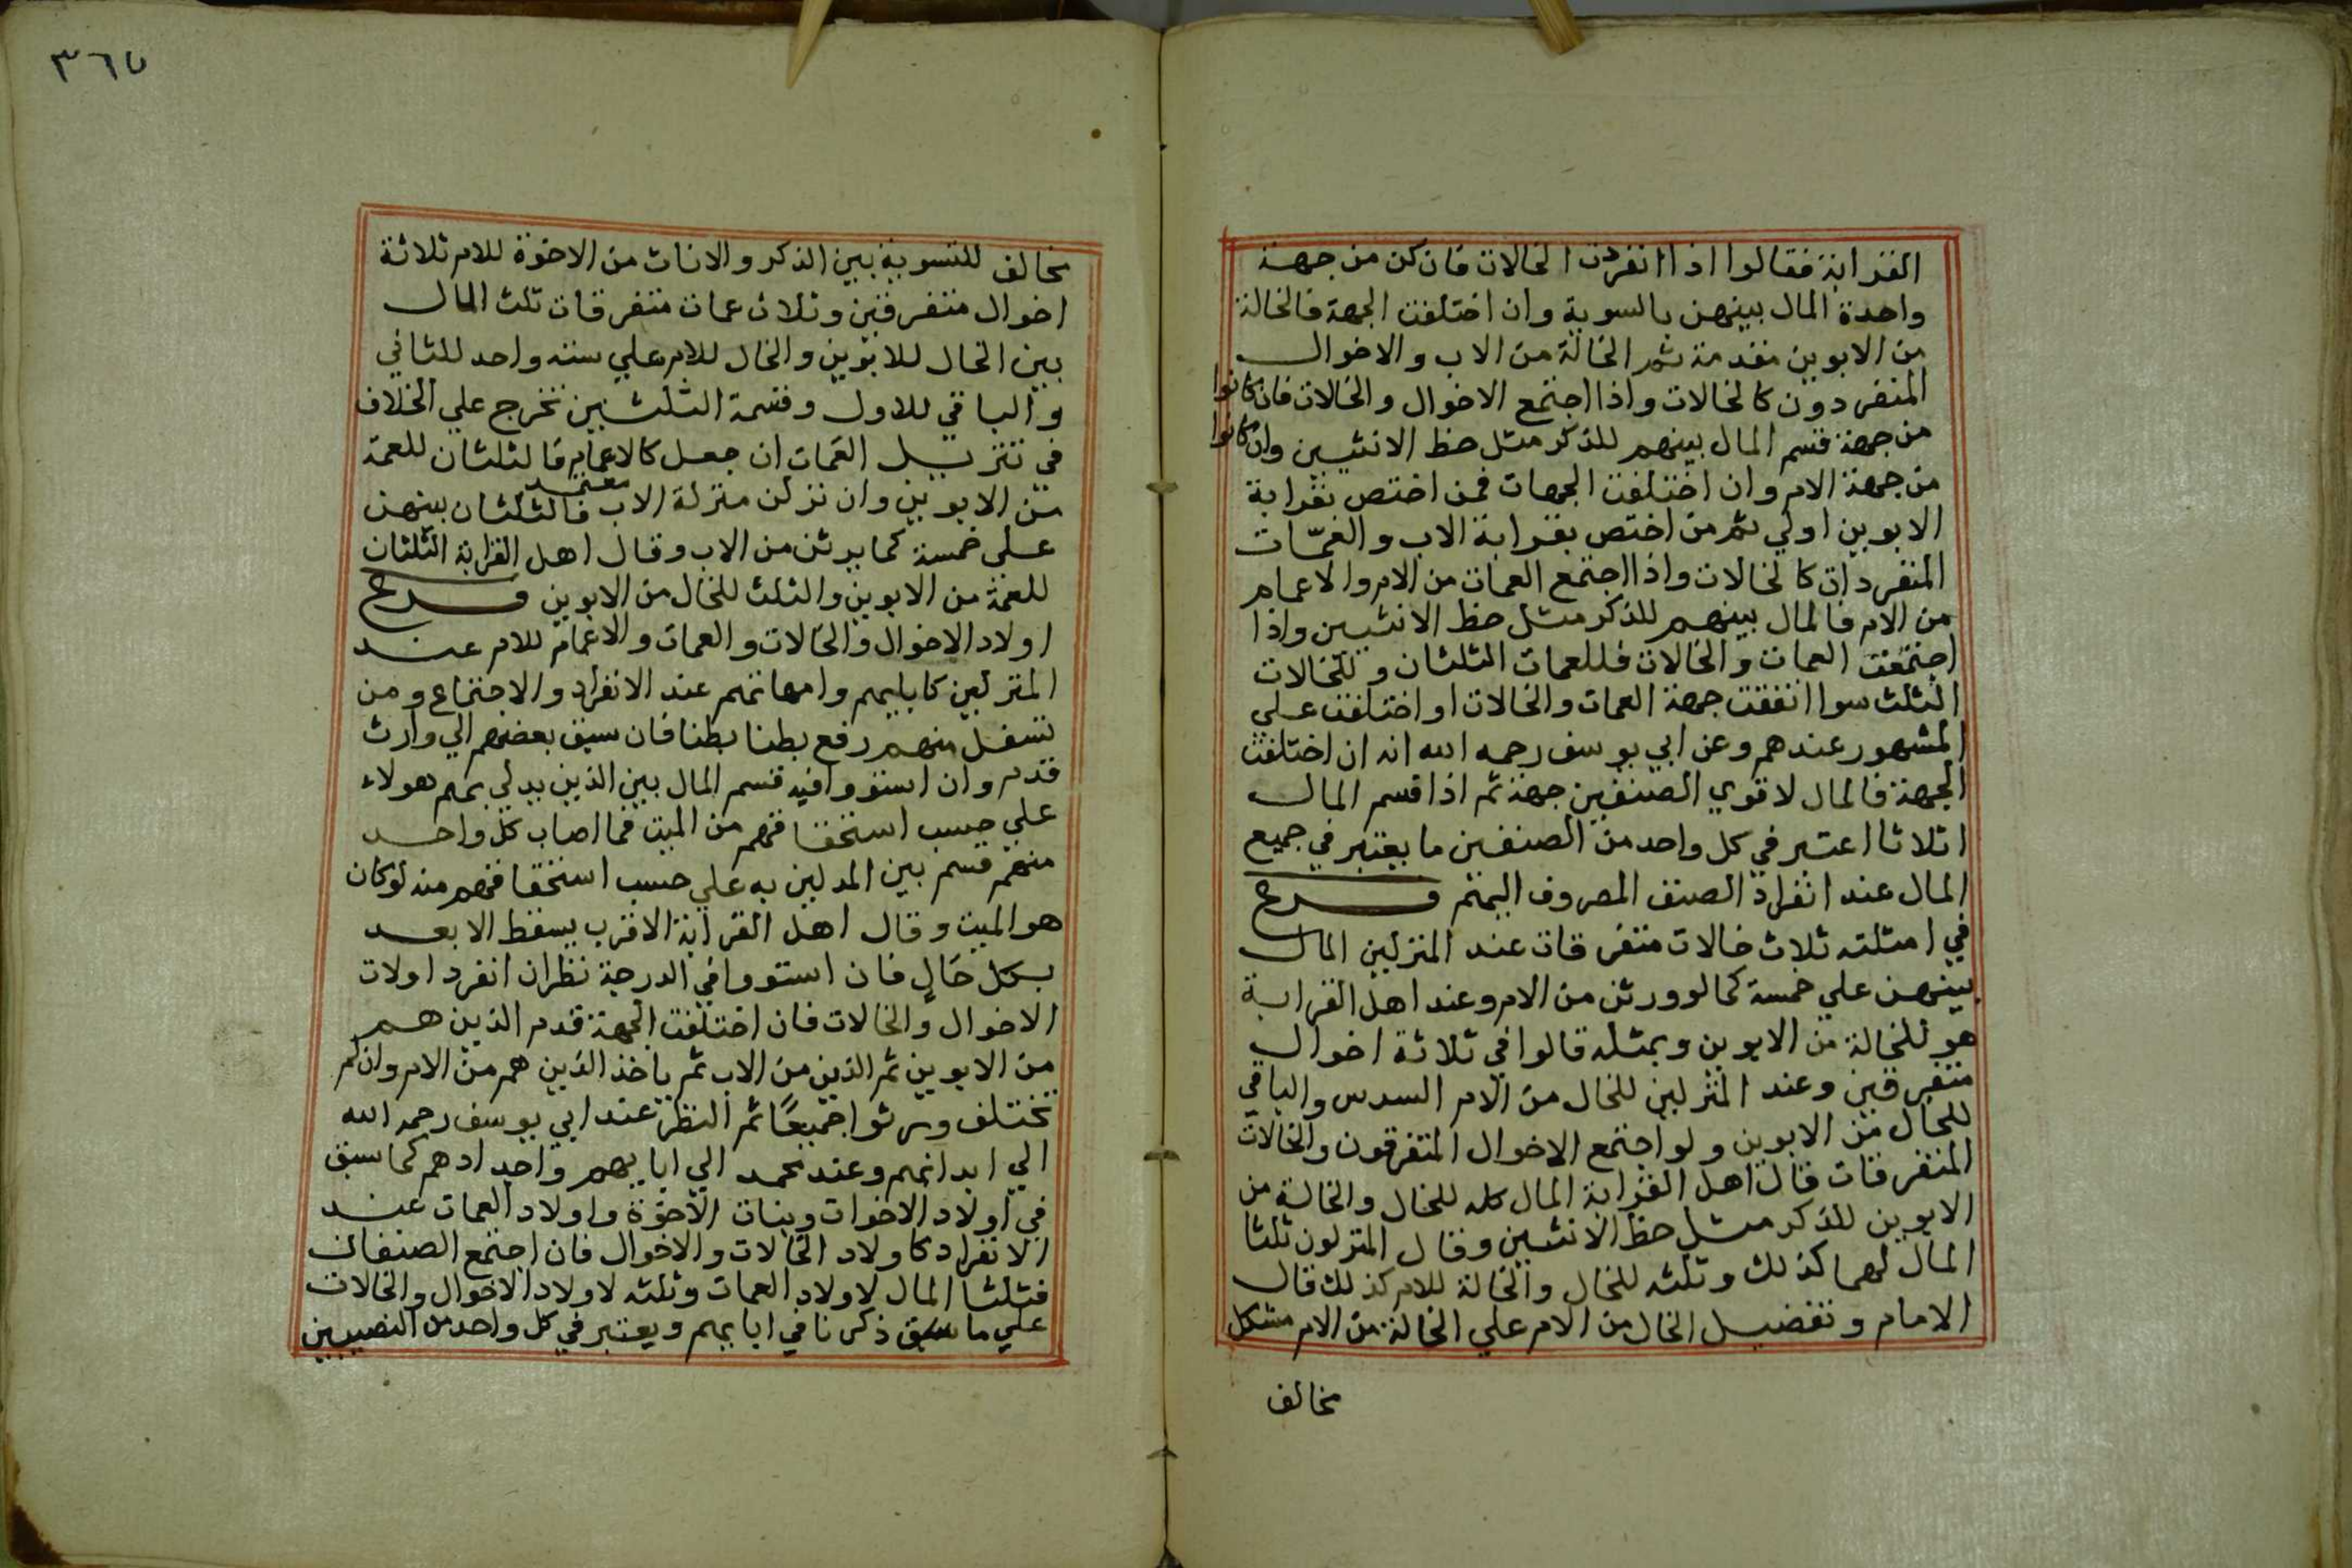 القرابة فقالوا اذا انفردت الخالات فان كن من جهة
واحدة المال بينهن بالسوية وان اختلفت الجهة فالخالة
من الابوين مقدمة ثم الخالة من الاب والاخوال
المنفردون كالخالات واذا اجتمع الاخوال والخالات فان كانوا
من جهة قسم المال بينهم للذكر مثل حظ الانثيين وان كانوا
من جهة الام وان اختلفت الجهات فمن اختص بقرابة
الابوين اولي ثم من اختص بقرابة الاب والعمّات
المنفردات كالخالات واذا اجتمع العمات من الام والاعمام
من الام فالمال بينهم للذكر مثل حظ الانثيين واذا
اجتمعت العمات والخالات فللعمات الثلثان وللخالات
الثلث سوا اتفقت جهة العمات والخالات او اختلفت علي
المشهور عندهم وعن ابي يوسف رحمه الله انه ان اختلفت
الجهة فالمال لاقوي الصنفين جهة ثم اذا قسم المال
اثلاثا اعتبر في كل واحد من الصنفين ما يعتبر في جميع
المال عند انفراد الصنف المصروف اليهم فرع
في امثلته ثلاث خالات متفرقات عند المنزلين المال
بينهن علي خمسة كما لو ورثن من الام وعند اهل القرابة
هو للخالة من الابوين وبمثله قالوا في ثلاثة اخوال
متفرقين وعند المنزلين للخال من الام السدس والباقي
للخال من الابوين ولو اجتمع الاخوال المتفرقون والخالات
المتفرقات قال اهل القرابة المال كله للخال والخالة من
الابوين للذكر مثل حظ الانثيين وقال المنزلون ثلثا
المال لهما كذلك وثلثه للخال والخالة للام كذلك قال
الامام وتفضيل الخال من الام علي الخالة من الام مشكل
مخالف
٣٦٥
مخالف للتسوية بين الذكر والاناث من الاخوة للام ثلاثة
اخوال متفرقين وثلاث عمات متفرقات ثلث المال
بين الخال للابوين والخال للام علي ستة واحد للثاني
والباقي للاول وقسمة الثلثين تخرج علي الخلاف
في تنزيل العمات ان جعل كالاعمام فالثلثان للعمة
من الابوين وان نزلن منزلة الاب معتمد فالثلثان بينهن
علي خمسة كما يرثن من الاب وقال اهل القرابة الثلثان
للعمة من الابوين والثلث للخال من الابوين فرع
اولاد الاخوال والخالات والعمات والاعمام للام عند
المنزلين كابايهم وامهاتهم عند الانفراد والاجتماع ومن
تسفل منهم رفع بطنا بطنا فان سبق بعضهم الي وارث
قدم وان استووا فيه قسم المال بين الذين يدلي بهم هولاء
علي حسب استحقاقهم من الميت فما اصاب كل واحد
منهم قسم بين المدلين به علي حسب استحقاقهم منه لو كان
هو الميت وقال اهل القرابة الاقرب يسقط الابعد
بكل حال فان استووا في الدرجة نظر ان انفرد اولات
الاخوال والخالات فان اختلفت الجهة قدم الذين هم
من الابوين ثم الذين من الاب ثم ياخذ الذين هم من الام وان لم
تختلف ورثوا جميعًا ثم النظر عند ابي يوسف رحمه الله
الي ابدانهم وعند محمد الي ابايهم واجدادهم كما سبق
في اولاد الاخوات وبنات الاخوة واولاد العمات عند
الانفراد كاولاد الخالات والاخوال فان اجتمع الصنفان
فثلثا المال لاولاد العمات وثلثه لاولاد الاخوال والخالات
علي ما سبق ذكرنا في ابايهم ويعتبر في كل واحد من النصيبين